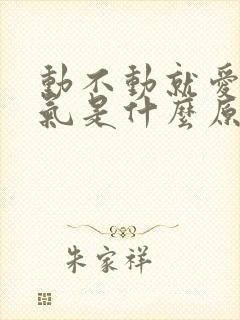 動不動就愛
氣是什麼原
朱家祥